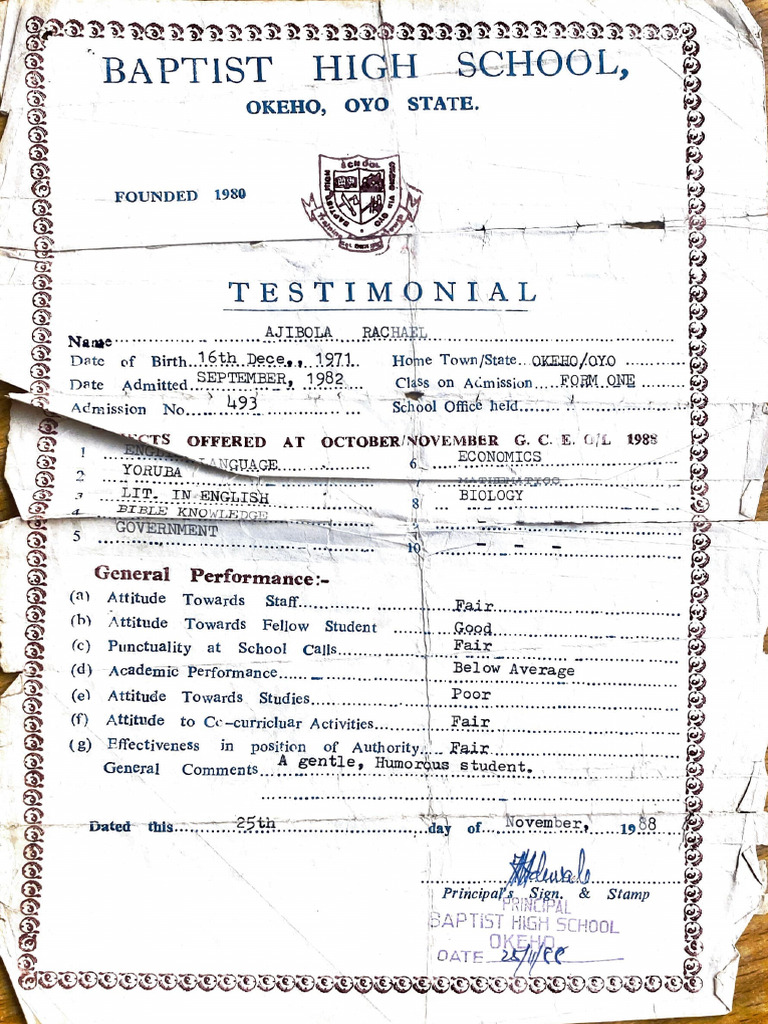 BAPTIST HIGH SCHOOL,
OKEHO, OYO STATE.
SCHOOL
HIGH
BAPTIST
OKEHO VIA OYO
FOUNDED 1980
TESTIMONIAL
Name AJIBOLA RACHAEL
Date of Birth 16th Dece., 1971 Home Town/State OKEHO/OYO
Date Admitted SEPTEMBER, 1982 Class on Admission FORM ONE
Admission No. 493 School Office held
JECTS OFFERED AT OCTOBER/NOVEMBER G. C. E. O/L 1988
1 ENGLISH LANGUAGE 6 ECONOMICS
2 YORUBA 7 MATHEMATICS
3 LIT. IN ENGLISH 8 BIOLOGY
4 BIBLE KNOWLEDGE
5 GOVERNMENT 10 - - -
General Performance:-
(a) Attitude Towards Staff Fair
(b) Attitude Towards Fellow Student Good
(c) Punctuality at School Calls Fair
(d) Academic Performance Below Average
(e) Attitude Towards Studies Poor
(f) Attitude to Co-curricluar Activities Fair
(g) Effectiveness in position of Authority Fair
General Comments A gentle, Humorous student.
Dated this 25th day of November, 1988
Principal's Sign. & Stamp
PRINCIPAL
BAPTIST HIGH SCHOOL
OKEHO
DATE 25/11/88